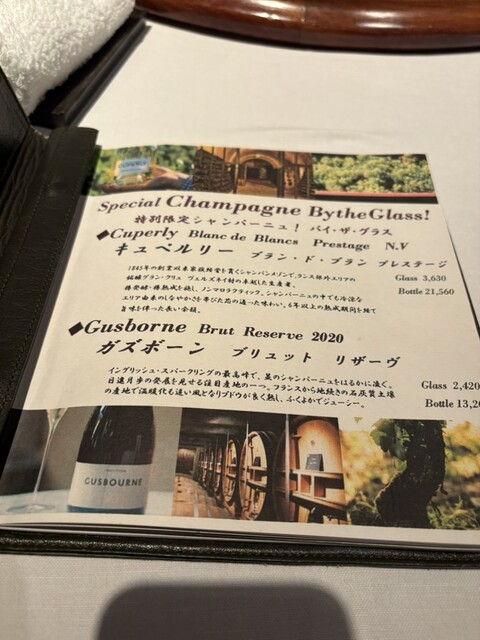 Special Champagne BytheGlass!
特別限定シャンパーニュ！ バイ・ザ・グラス
◆Cuperly Blanc de Blancs Prestage N.V
キュペルリー ブラン・ド・ブラン プレステージ
1845年の創業以来家族経営を貫くシャンパンメゾン、ランス郊外エリアの
銘醸グラン・クリュ ヴェルズネイ村の卓越した生産者。
樽発酵・樽熟成を施し、ノンマロラクティック。シャンパーニュの中でも冷涼な
エリア由来のしなやかさを帯びた芯の通った味わい。6年以上の熟成期間を経て
旨味を伴った長い余韻。
Glass 3,630
Bottle 21,560
◆Gusborne Brut Reserve 2020
ガズボーン ブリュット リザーヴ
イングリッシュ・スパークリングの最高峰で、並のシャンパーニュをはるかに凌ぐ。
日進月歩の発展を見せる注目産地の一つ。フランスから地続きの石灰質土壌
の産地で温暖化も追い風となりブドウが良く熟し、ふくよかでジューシー。
Glass 2,420
Bottle 13,20
GUSBOURNE